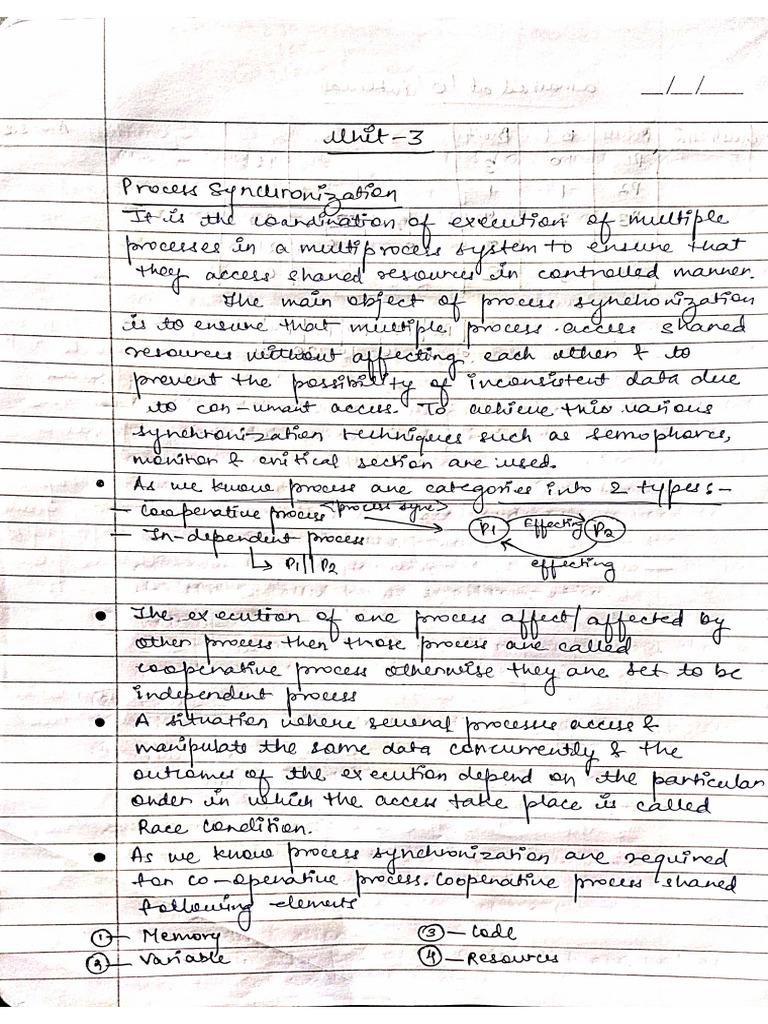 _/_/__
Unit-3
Process Synchronization
It is the coordination of execution of multiple
processes in a multiprocess system to ensure that
they access shared resources in controlled manner.
The main object of process synchonization
is to ensure that multiple process access shared
resources without affecting each other & to
prevent the possibility of inconsistent data due
to con-urrant access. To achieve this various
synchronization techniques such as semophores,
monitor & critical section are used.
• As we know process are categories into 2 types:-
- cooperative process <process sync> P1 Effecting P2
- In-dependent process
↳ P1 || P2 effecting
• The execution of one process affect/affected by
other process then those process are called
cooperative process otherwise they are set to be
independent process
• A situation where several processes access &
manipulate the same data concurrently & the
outcomes of the execution depend on the particular
order in which the access take place is called
Race Condition.
• As we know process synchronization are required
for co-operative process. Cooperative process shared
following elements
① - Memory ③ - Code
② - Variable ④ - Resources